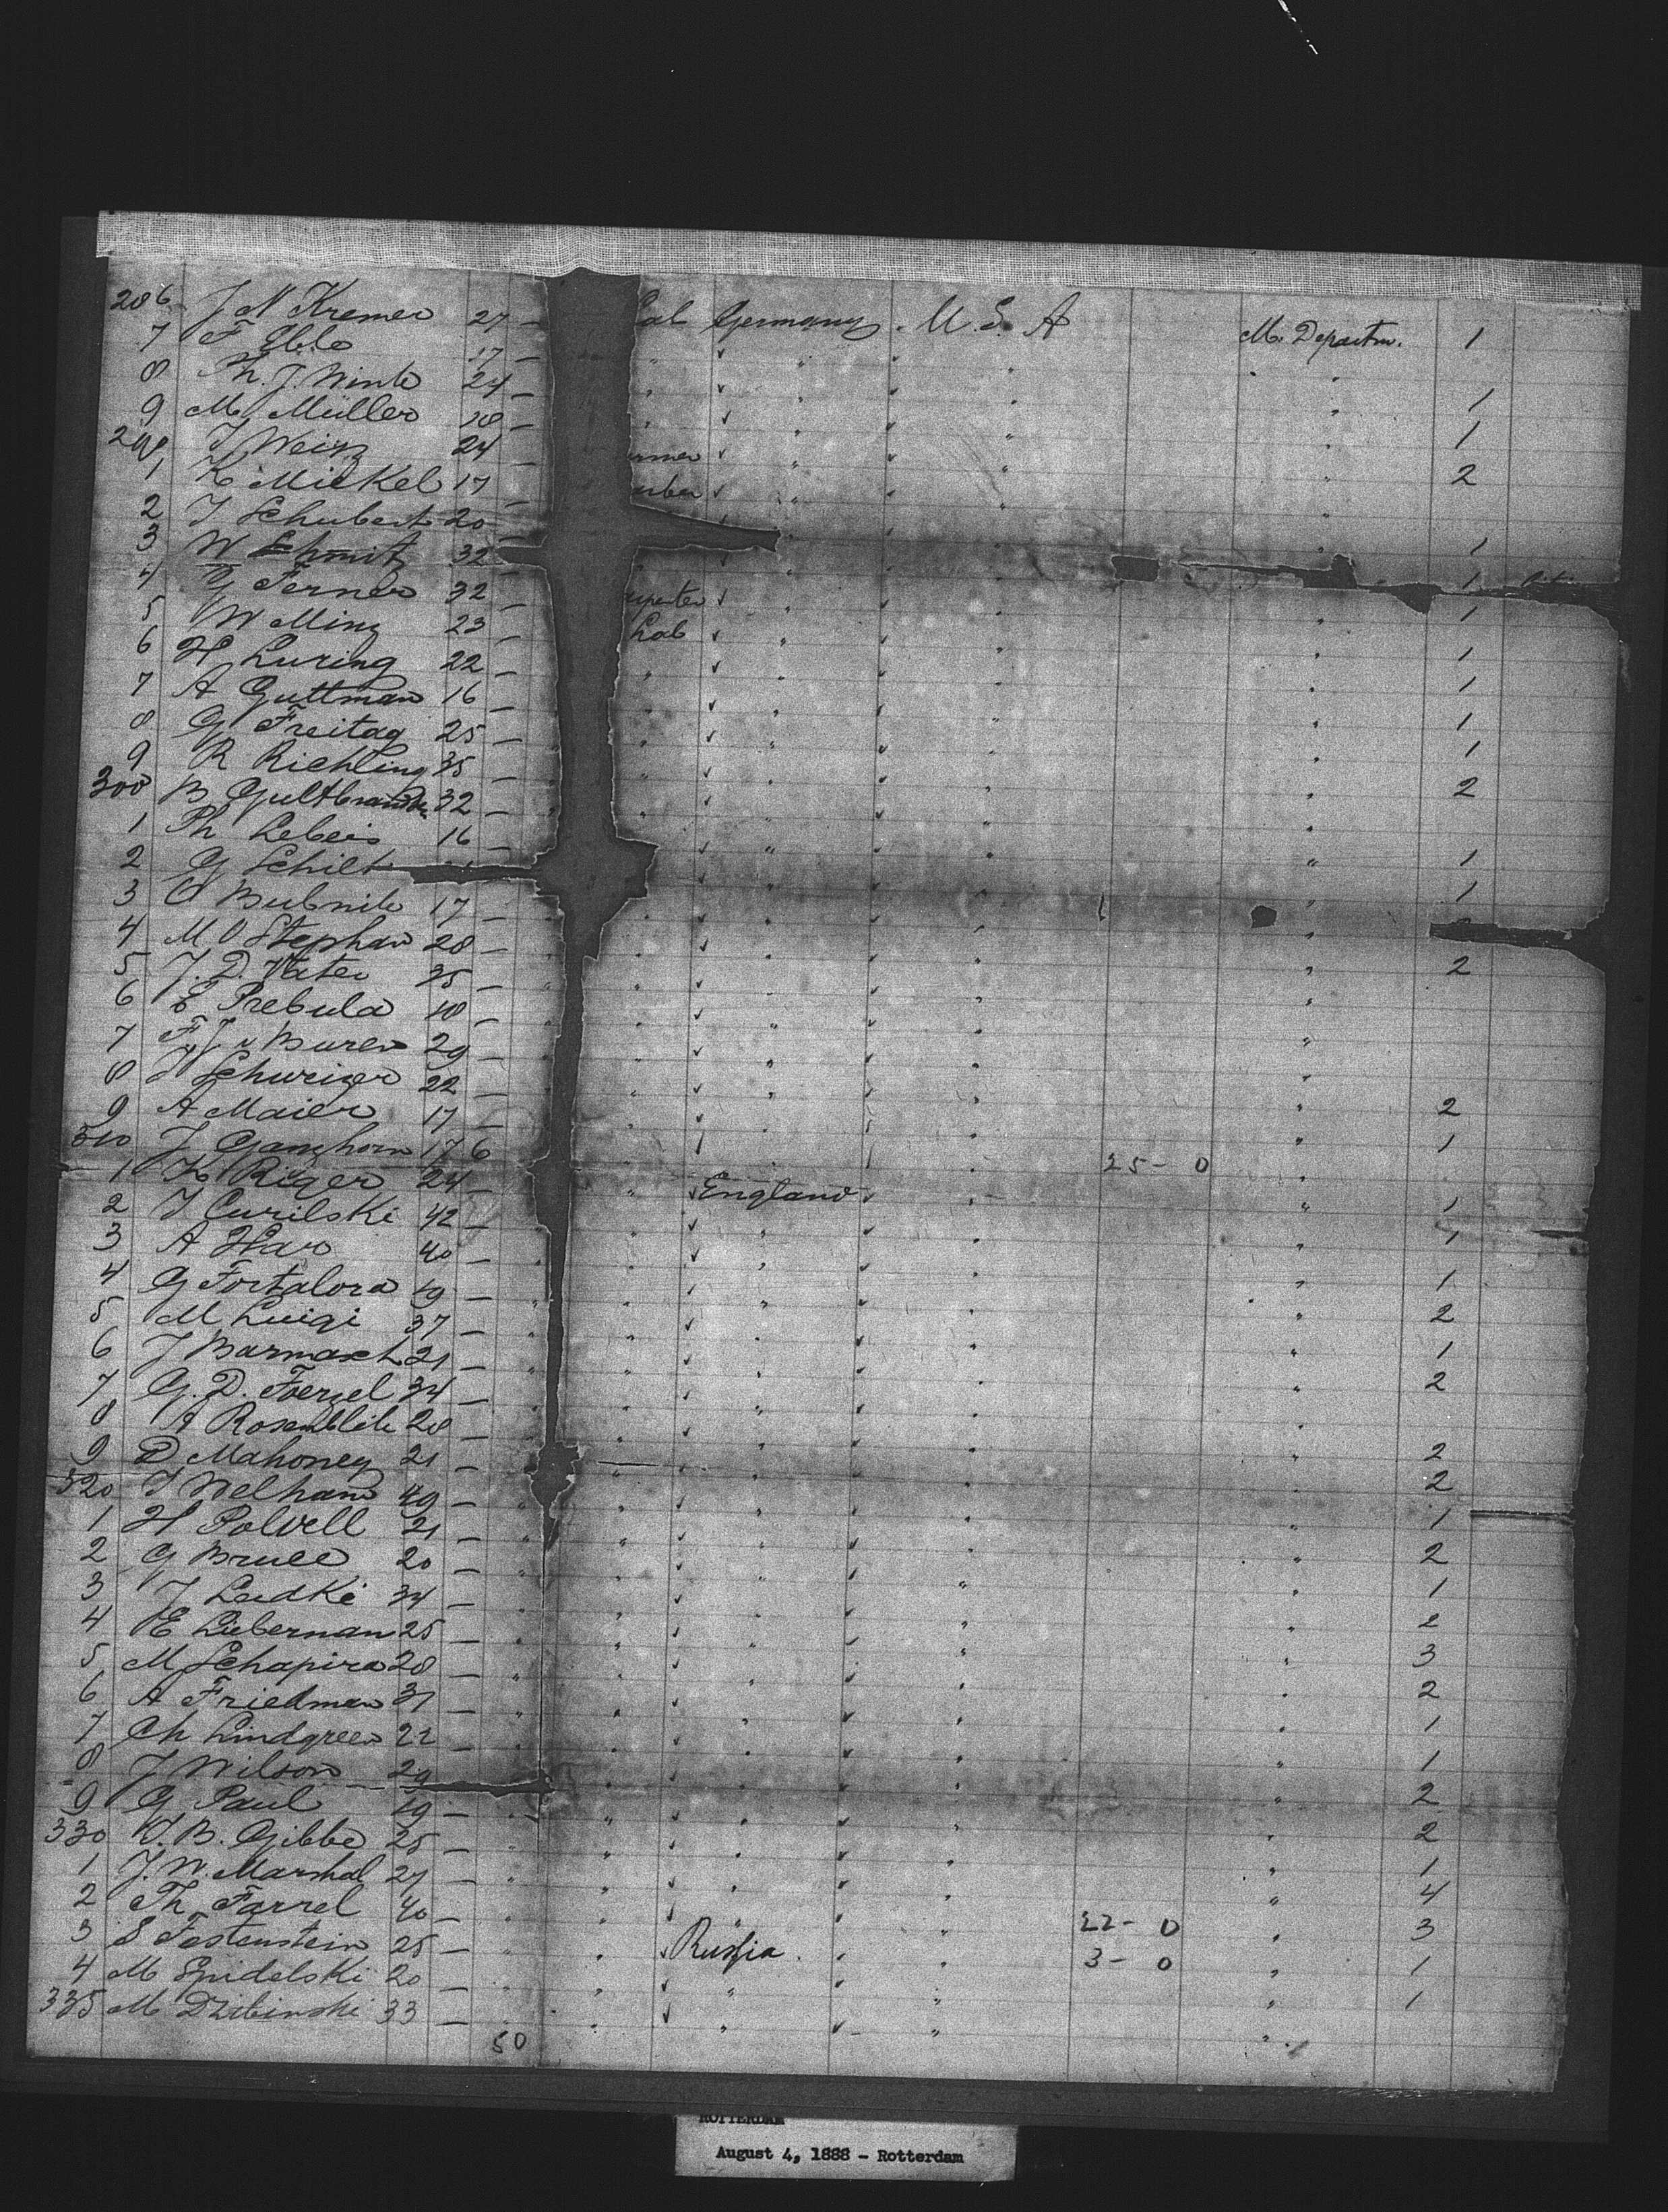 286 J N Kremer 27 — Lab Germany U. S. A M. Departm. 1
7 F 17 — " " "
8 Ph. J. Wink 24 — " " " 1
9 M Müller 18 — " " " 1
290 J Weisz 24 — " " " 2
1 K Mickel 17 — " " "
2 J Schubert 20 — " " " 1
3 W Schmit 32 — " " " 1
4 G Ferner 32 — " " " 1
5 W Ming 23 — Lab " " " 1
6 H Luring 22 — " " " " 1
7 A Guttman 16 — " " " " 1
8 G Freitag 25 — " " " " 1
9 R Richling 35 — " " " " 2
300 B 32 — " " " "
1 Ph Lebeis 16 — " " " 1
2 G Schilt " " " 1
3 O Bubnik 17 — " " " "
4 M O Stephan 28 — " " " " 2
5 J. D. Vater 35 — " " " "
6 Prebula 18 — " " " "
7 F J v Buren 29 — " " " "
8 J 22 — " " " " 2
9 A Maier 17 — " " " " 1
310 J Ganzhorn 17 6 25 - 0 "
1 K Riger 24 — " England " " 1
2 J Curilski 42 — " " " " 1
3 A Har 40 — " " " " 1
4 G Fortalora 19 — " " " " 2
5 M Luigi 37 — " " " " 1
6 J Barmasch 21 — " " " " 2
7 G. D. Foerzel 34 — " " " "
8 A Rosenblik 28 — " " " " 2
9 D Mahoney 21 — " " " " 2
320 J Welham 49 — " " " " 1
1 H Polvell 21 — " " " " 2
2 G Bruce 20 — " " " " 1
3 J Ladki 34 — " " " " 2
4 E Lieberman 25 — " " " " 3
5 M Schapira 28 — " " " " 2
6 A Friedman 31 — " " " " 1
7 Ch Lindgreen 22 — " " " " 1
8 J Wilson 29 — " " " " 2
9 G Paul 19 — " " " " 2
330 W. B. Gibbe 25 — " " " " 1
1 J. W. Marshal 27 — " " " " 4
2 Th Farrel 40 — " " " 22 - 0 " 3
3 S Festenstein 25 — " Russia " " 3 - 0 " 1
4 M Spidelski 20 — " " " " 1
335 M Dzibinski 33 — " " " "
50
ROTTERDAM
August 4, 1888 - Rotterdam